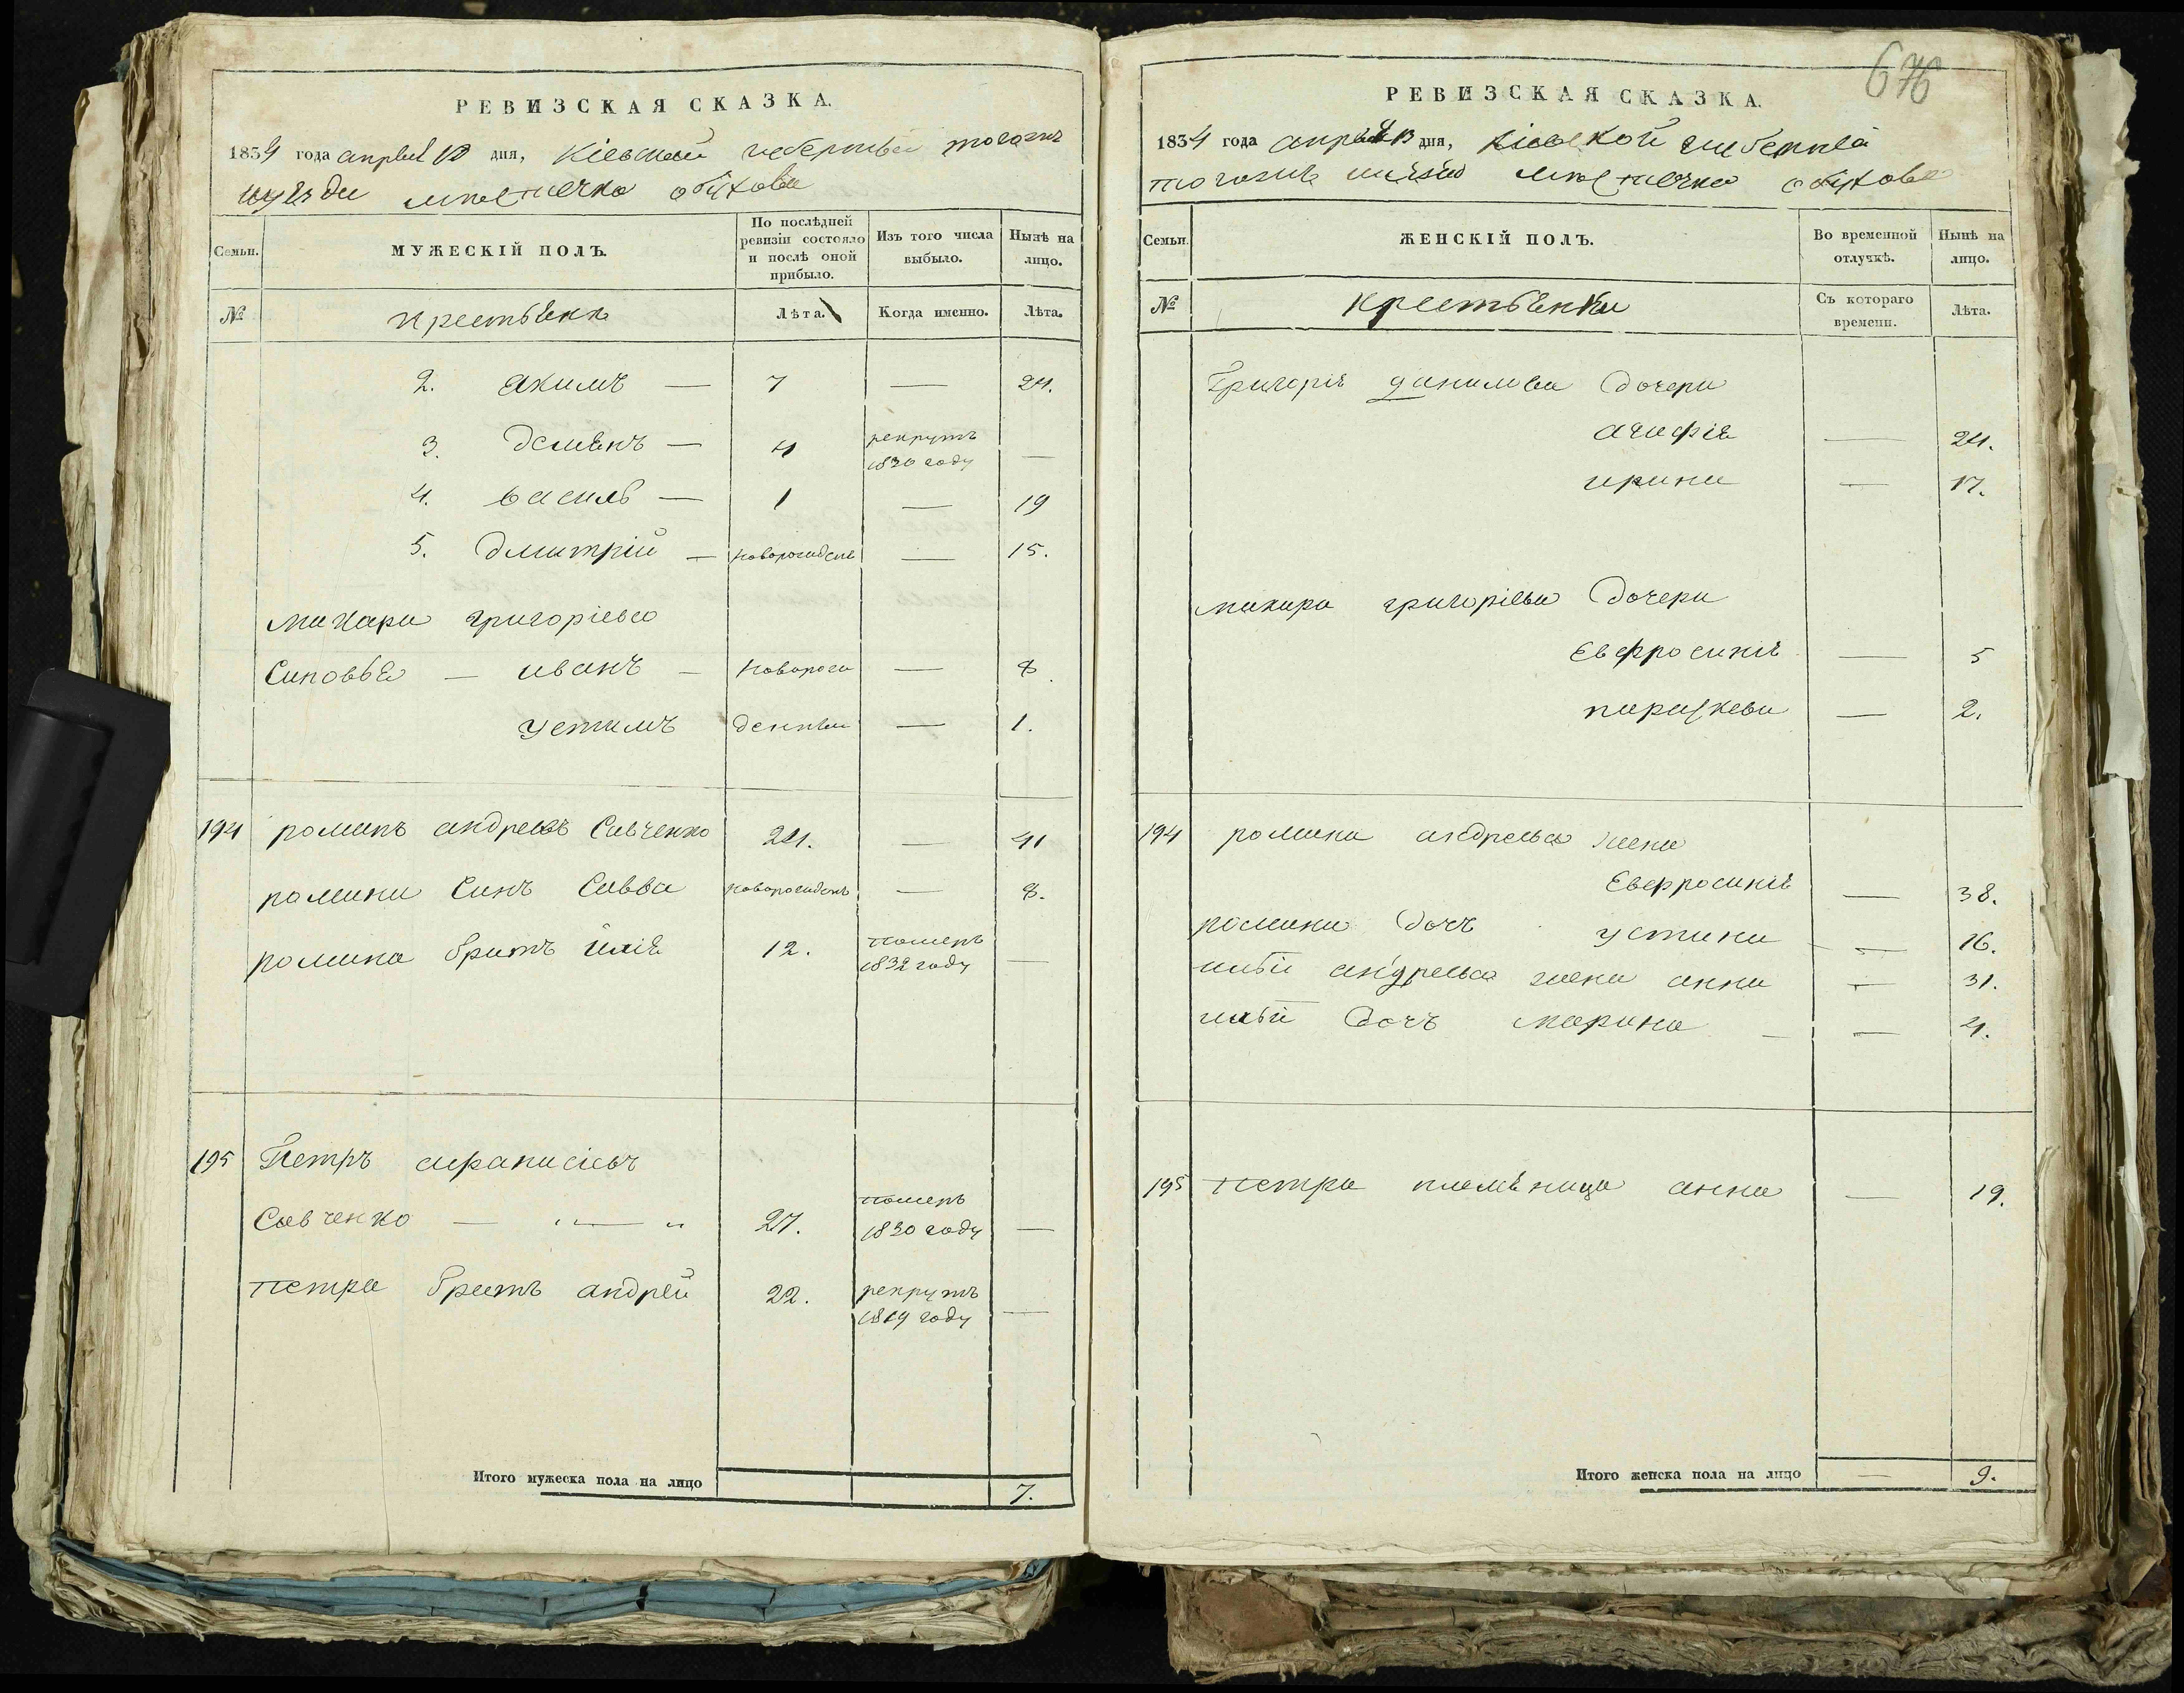 РЕВИЗСКАЯ СКАЗКА.
1834 года апреля 10 дня, Кіевской губерніи того жъ
уезда местечка обухова
Семьи. МУЖЕСКІЙ ПОЛЪ. По послѣдней ревизіи состояло и послѣ оной прибыло. Изъ того числа выбыло. Нынѣ на лицо.
№ крестьяне Лѣта. Когда именно. Лѣта.
2. акимъ — 7 — 24.
3. демянъ — 4 рекрутъ 1830 году —
4. василь — 1 — 19
5. дмитрій — новорожденъ — 15.
макара григоріева
синовья — иванъ — новорож — 8
устимъ денные — 1.
194 романъ андреевъ Савченко 24. — 41
романа синъ Савва новорожденъ — 8.
романа братъ илія 12. померъ 1832 году —
195 Петръ афанасіевъ
Савченко — „ — „ 27. померъ 1830 году —
петра братъ андрей 22. рекрутъ 1819 году —
Итого мужеска пола на лицо 7.
676
РЕВИЗСКАЯ СКАЗКА.
1834 года апреля дня, Кіевской губерніи
того жъ местечка обухова
Семьи. ЖЕНСКІЙ ПОЛЪ. Во временной отлучкѣ. Нынѣ на лицо.
№ крестьянки Съ котораго времени. Лѣта.
Григорія данилова дочери
агафія — 24.
ирина — 17.
макара григоріева дочери
Евфросинія — 5
параскева — 2.
194 романа андреева жена
Евфросинія — 38.
романа дочъ устина — 16.
ильи андреева жена анна — 31.
ильи дочъ марина — — 4.
195 петра племѣница анна — 19.
Итого женска пола на лицо — 9.